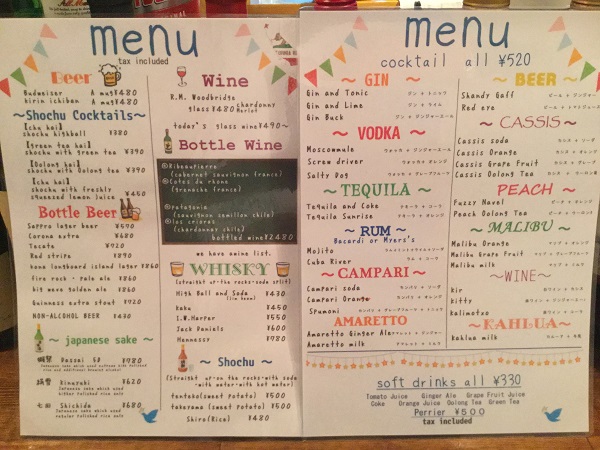 menu
tax included
Beer
Budweiser A mug ¥480
kirin ichiban A mug ¥480
~Shochu Cocktails~
[chu hai]
shochu highball ¥380
[green tea hai]
shochu with green tea ¥390
[Oolong hai]
shochu with Oolong tea ¥390
[chu hai]
shochu with freshly
squeezed lemon juice ¥450
Bottle Beer
Sapporo lager beer ¥590
Corona extra ¥680
Tecate ¥920
Red stripe ¥890
kona longboard island lager ¥860
fire rock - pale ale ¥860
big wave golden ale ¥860
Guinness extra stout ¥920
NON-ALCOHOL BEER ¥430
~ japanese sake ~
Dassai ¥780
¥620
七田 Shichida ¥680
Wine
R.M. Woodbridge
glass ¥480 chardonnay
merlot
today's glass wine ¥490~
Bottle Wine
(cabernet sauvignon france)
Cotes du rhone
(grenache france)
(sauvignon semillon chile)
(chardonnay chile)
bottled wine ¥2480
we have wine list.
WHISKY
(straight or the rocks-soda split)
High Ball and Soda ¥430
kaku ¥450
I.W.Harper ¥550
Jack Daniels ¥600
Hennessy ¥780
~ Shochu ~
(Straight or the rocks-with soda
-with water-with hot water)
(sweet potato) ¥500
(sweet potato) ¥500
Shiro(Rice) ¥480
menu
cocktail all ¥520
~ GIN ~
Gin and Tonic ジン + トニック
Gin and Lime ジン + ライム
Gin Buck ジン + ジンジャーエール
~ VODKA ~
Moscowmule ウォッカ + ジンジャーエール
Screw driver ウォッカ + オレンジ
Salty Dog
~TEQUILA~
Tequila and Coke テキーラ + コーラ
Tequila Sunrise テキーラ + オレンジ
~ RUM ~
Bacardi or Myers's
Mojito
Cuba River ラム + コーラ
~ CAMPARI ~
Campari soda カンパリ + ソーダ
Campari Orange カンパリ + オレンジ
Spumoni
AMARETTO
Amaretto Ginger Ale
Amaretto milk アマレット + ミルク
~ BEER ~
Shandy Gaff ビール + ジンジャー
Red eye
~CASSIS~
Cassis soda カシス + ソーダ
Cassis Orange カシス + オレンジ
Cassis Grape Fruit
Cassis Oolong Tea
PEACH
Fuzzy Navel ピーチ + オレンジ
Peach Oolong Tea
~MALIBU~
Malibu Orange マリブ + オレンジ
Malibu Grape Fruit
Malibu milk
~WINE~
kir
kitty
kalimotxo
~KAHLUA~
kahlua milk
soft drinks all ¥330
Tomato Juice Ginger Ale Grape Fruit Juice
Coke Orange Juice Oolong Tea Green Tea
Perrier ¥500
tax included